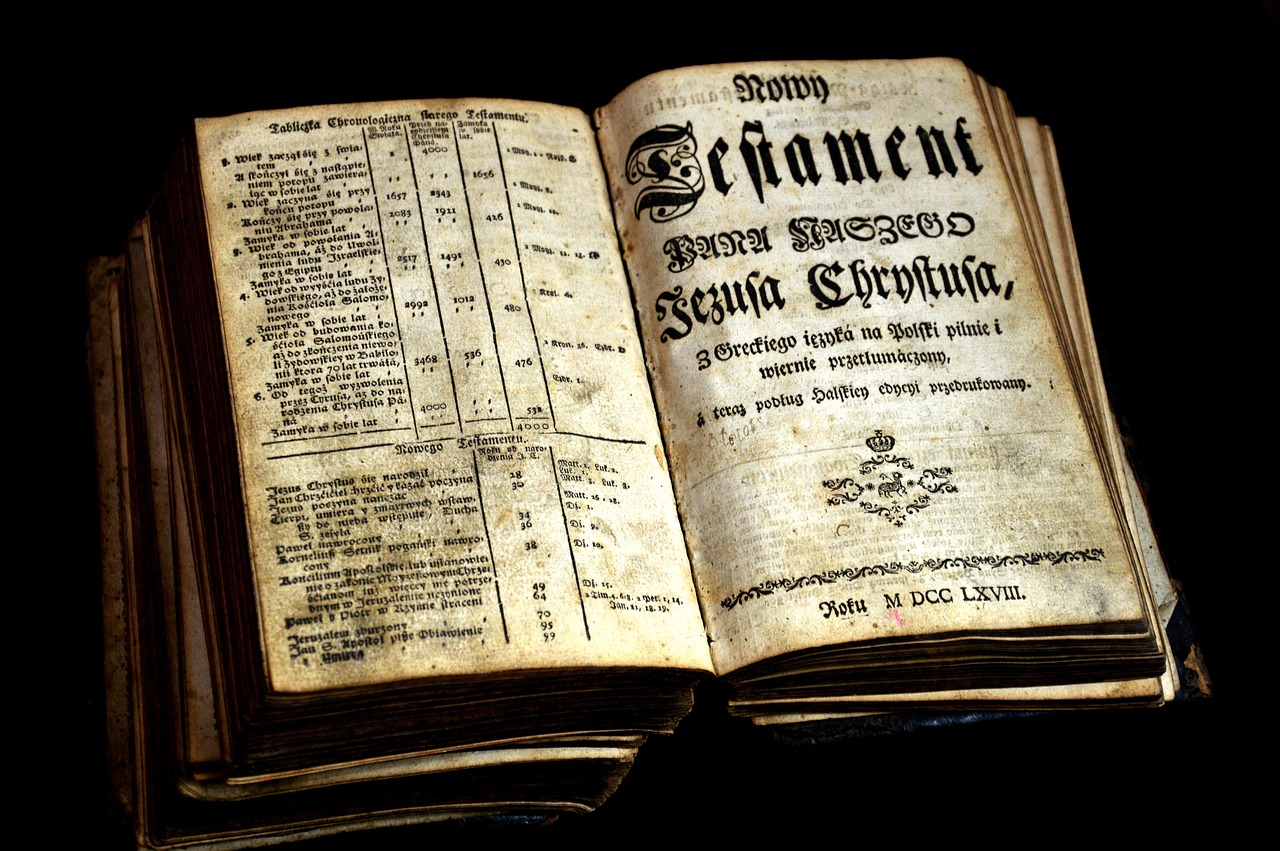 Tabliczka Chronologiczna starego Testamentu.
W Roku Swiata.
Przed narodzeniem Chrystusa Pana.
Zamyka w sobie lat.
1. Wiek zaczął się z świa-
tem 1 4000 1 Moy. 1
A skończył się z nastąpie-
niem potopu zawiera-
iąc w sobie lat 1656
2. Wiek zaczyna się przy
końcu potopu 1657 2343 1 Moy. 8.
Kończy się przy powoła-
niu Abrahama 2083 1921 1 Moy. 12.
Zamyka w sobie lat 426
3. Wiek od powołania A-
brahama, aż do Uwol-
nienia ludu Izraelskie-
go z Egiptu 2517 1491 2 Moy. 12.
Zamyka w sobie lat 430
4. Wiek od wyyścia ludu Zy-
dowskiego, aż do założe-
nia Kościoła Salomo-
nowego 2992 1012 1 Krol. 6.
Zamyka w sobie lat 480
5. Wiek od budowania ko-
ścioła Salomońskiego
aż do zkończenia niewo-
li Zydowskiey w Babilo-
nii ktora 70 lat trwała, 3468 536 2 Kron. 36.
Zamyka w sobie lat 476
6. Od tegoż wyzwolenia Ezdr. 1.
przez Cyrusa, aż do na-
rodzenia Chrystusa Pa-
na 4000
Zamyka w sobie lat 532
4000
Nowego Testamentu.
Roku od naro-
dzenia J. C.
Jezus Chrystus się narodził Matt. 1. Luk. 2.
Jan Chrzciciel chrzcić y kazać poczyna 28
Jezus poczyna nauczać 30
Cierpi, umiera y zmartwych wstaw- Matt. 26 - 28.
szy do nieba wstępuie, Ducha Dz. 1.
S. zsyła 34
Paweł nawrocony 36 Dz. 9.
Korneliusz Setnik pogański nawro-
cony 38 Dz. 10.
Koncilium Apostolskie, lub ustanowie-
nie o zakonie Moyzeszowym Chrze-
ścianom iuż więcey nie potrze-
bnym w Jeruzalemie uczynione 49 Dz. 15.
Paweł y Piotr w Rzymie straceni 64 2 Tim. 4. 6. 8. 2 Petr. 1, 14.
Jan. 21, 18. 19.
Jeruzalem zburzony 70
Jan S. Apostoł pisze Obiawienie 95
y umiera 99
Nowy
Testament
PANA NASZEGO
Jezusa Chrystusa,
Z Greckiego ięzyká na Polski pilnie i
wiernie przetłumáczony,
á teraz podług Halskiey edycyi przedrukowany.
Roku M DCC LXVIII.